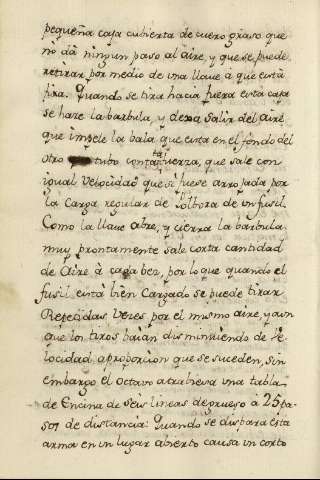 pequeña caja cubierta de cuero graso que
no dà ningun paso al aire, y que se puede
retirar por medio de una llave â que està
fixa. Quando se tira hacia fuera esta caja
se hare la barbula, y dexa salir del aire
que impele la bala que esta en el fondo del
otro tubo con tal fuerza, que sale con
igual velocidad que si fuese arrojada por
la Carga regular de Polbora de un fusil.
Como la llave abre, y cierra la barbula
muy prontamente sale corta cantidad
de Aire à cada bez, por lo que quando el
fusil està bien Cargado se puede tirar
Repetidas veces por el mismo aire, y aun
que los tiros baian disminuiendo de ve-
locidad aproporcion que se suceden, sin
embargo el Octavo atrabiesa una tabla
de Encina de seis lineas de grueso à 25 pa-
sos de distancia: Quando se dispara esta
arma en un lugar abierto causa un corto